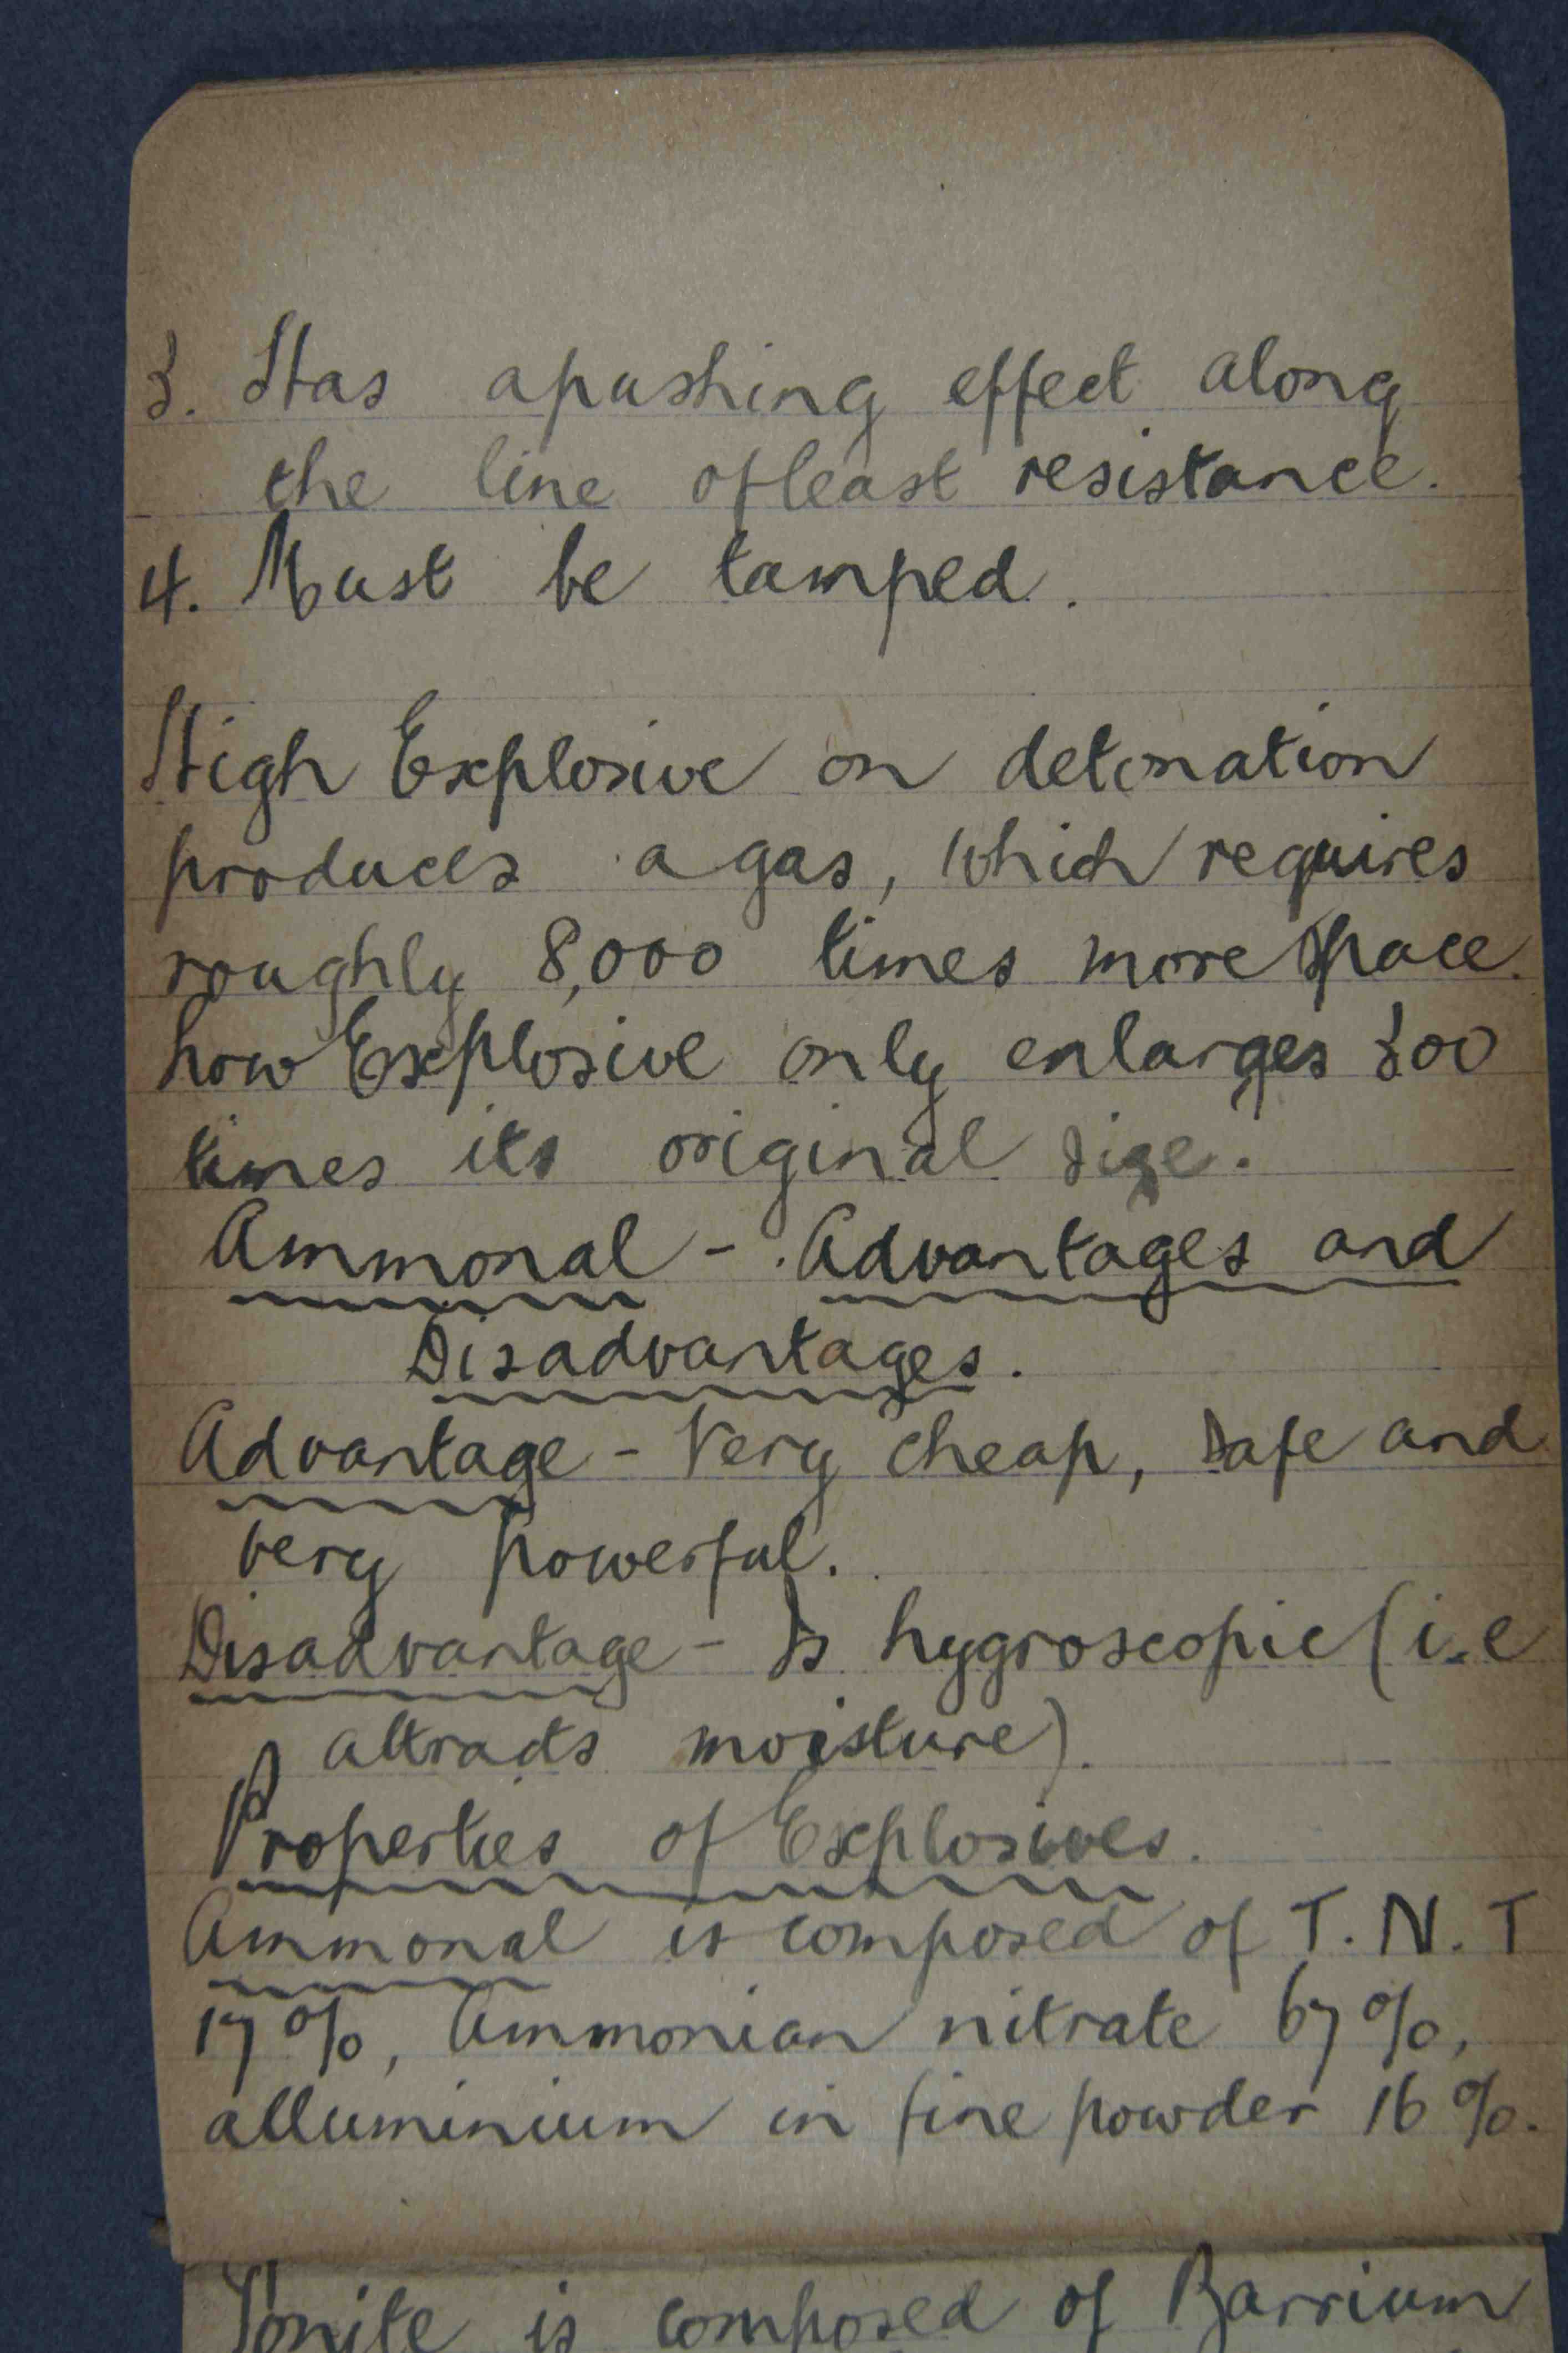 3. Has a pushing effect along
the line of least resistance.
4. Must be tamped.
High Explosive on detonation
produces a gas, which requires
roughly 8,000 times more space.
Low Explosive only enlarges 300
times its original size.
Ammonal - Advantages and
Disadvantages.
Advantage - Very cheap, safe and
very powerful.
Disadvantage - Is hygroscopic (i.e
attracts moisture).
Properties of Explosives.
Ammonal is composed of T.N.T
17%, Ammonian nitrate 67%,
alluminium in fine powder 16%.
Tonite is composed of Barrium